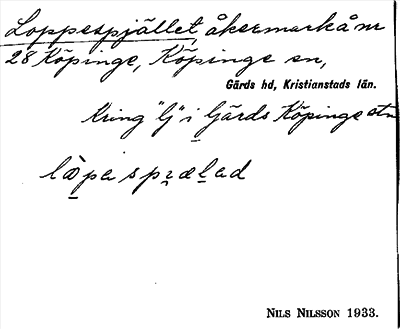 Loppespjället, åkermark å nr
28 Köpinge, Köpinge sn,
Gärds hd, Kristianstads län.
Kring "G" i Gärds Köpinge stn
NILS NILSSON 1933.